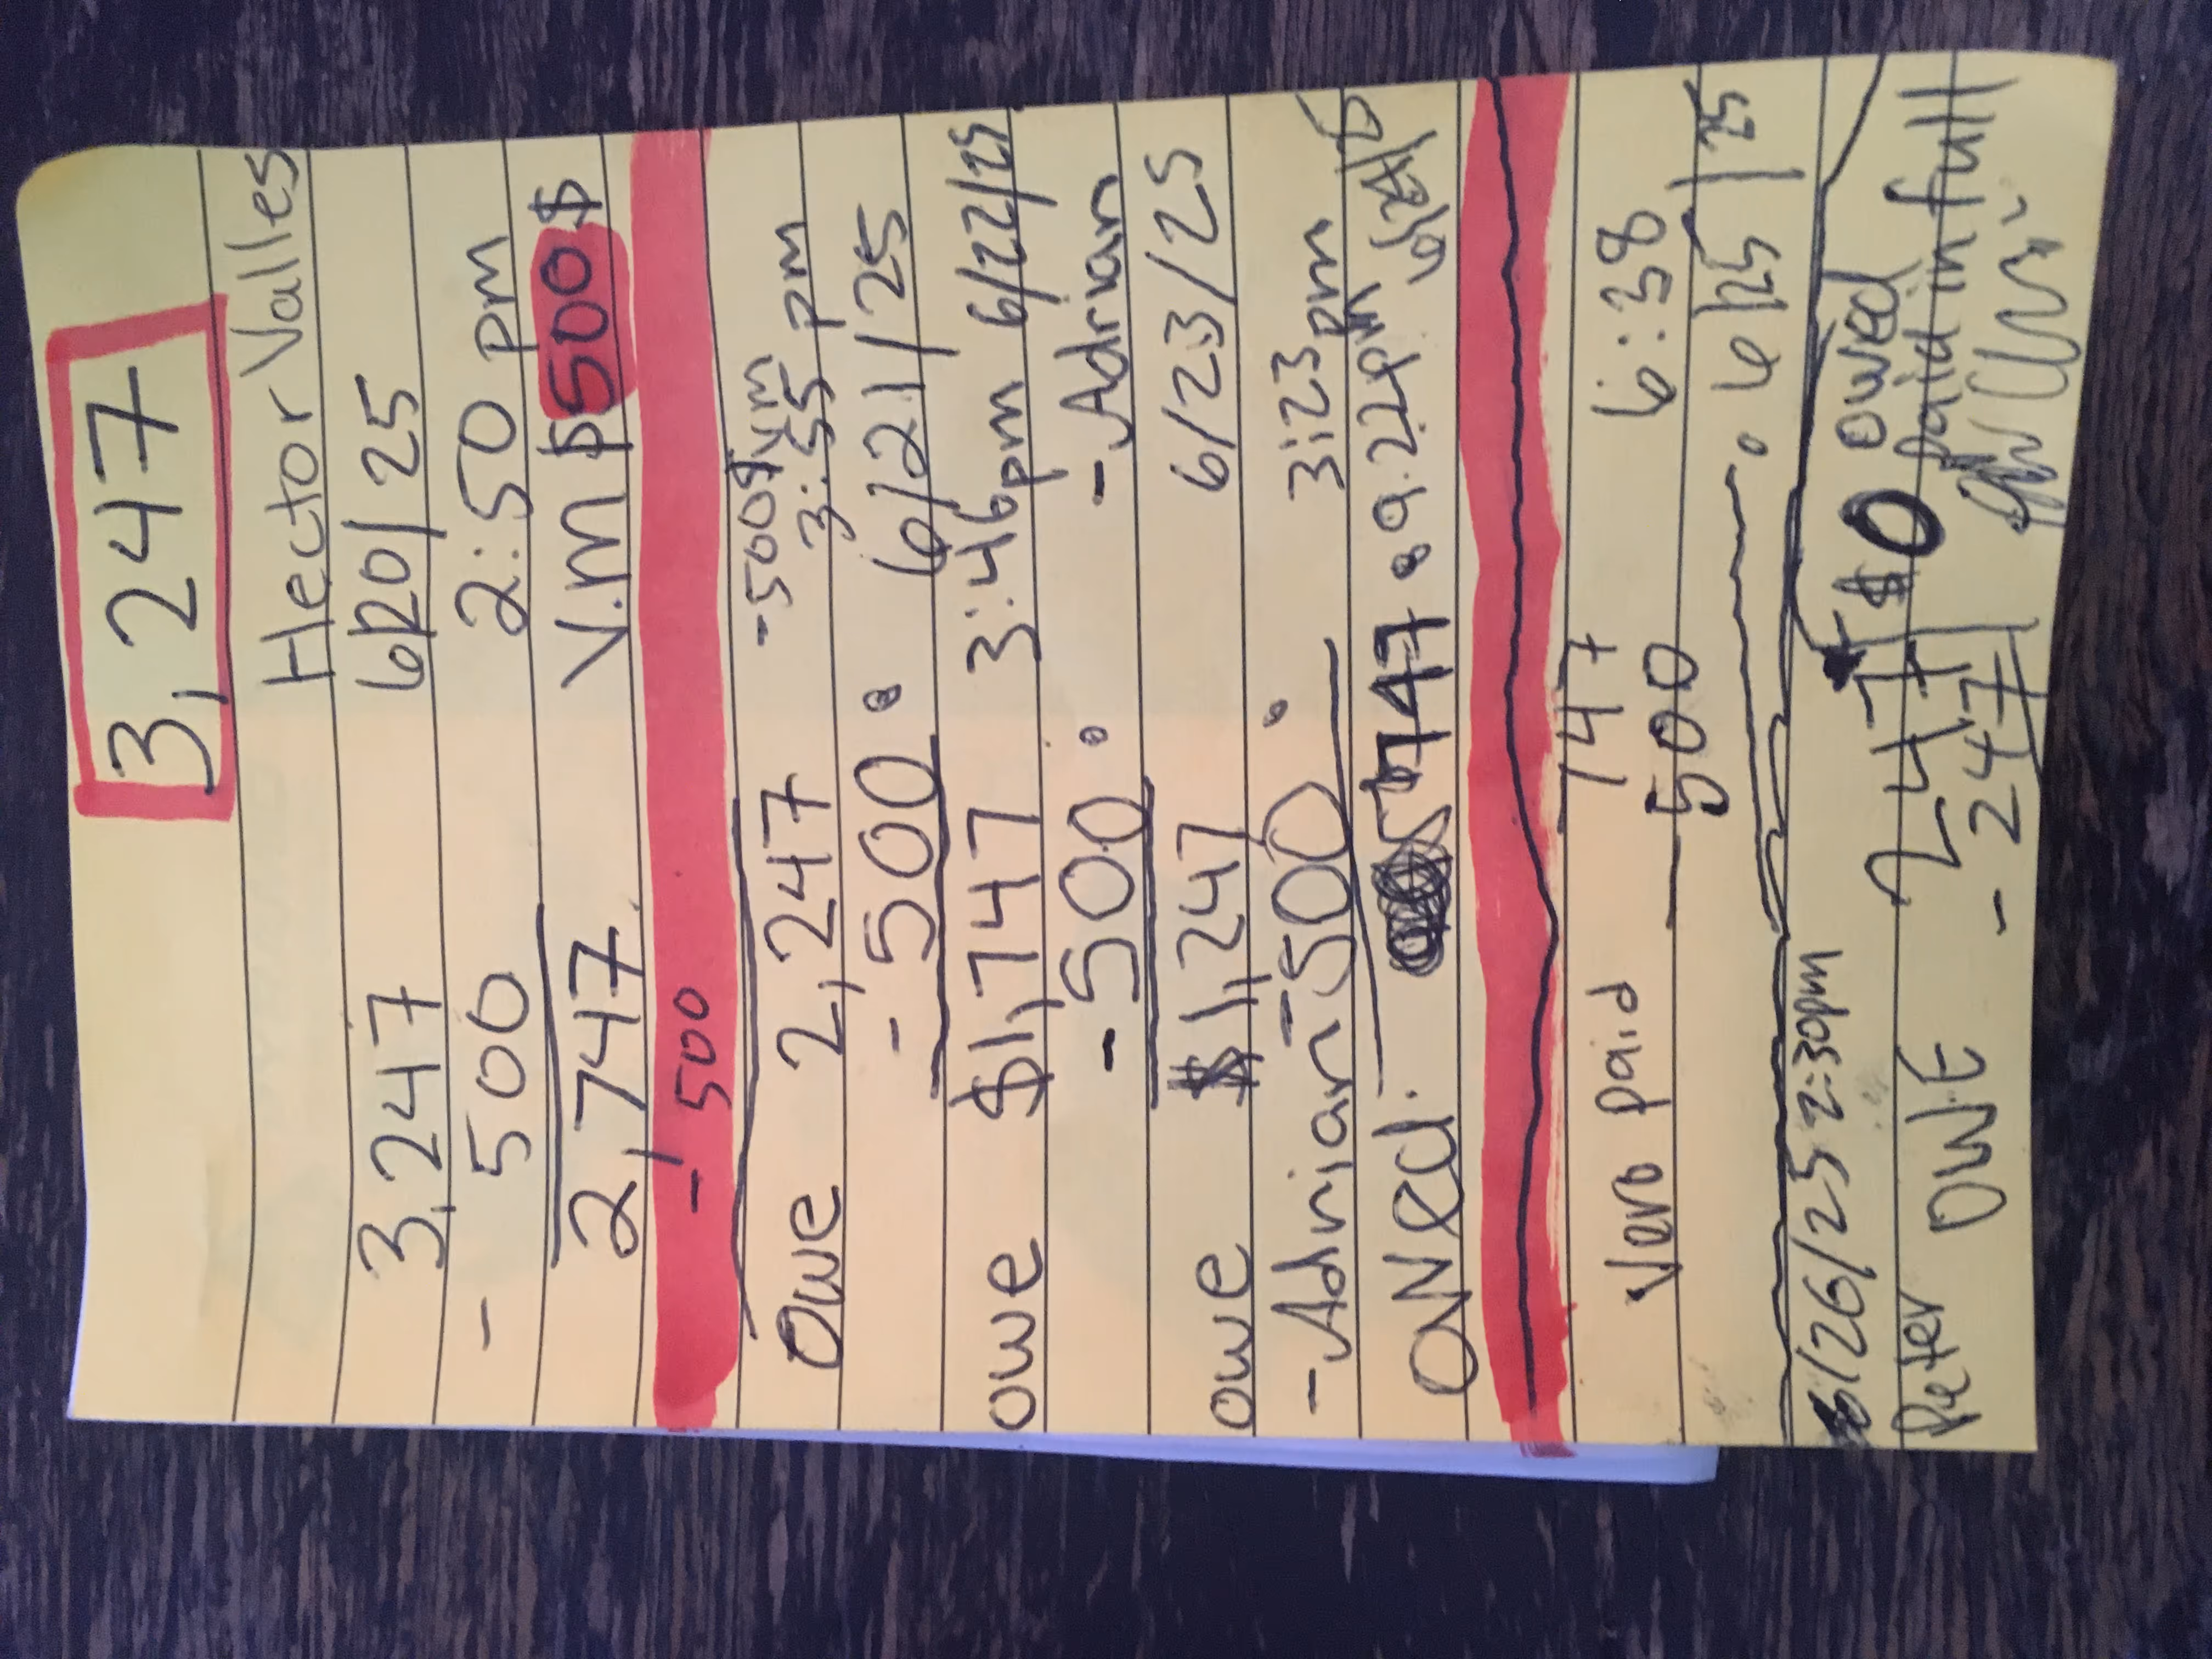 3,247
Hector Valles
3,247 6/20/25
- 500 2:50 pm
2,747 V.M $500$
- 500
-500$ V.M
3:55 pm
Owe 2,247
- 500 • 6/21/25
owe $1,747 3:46pm 6/22/25
- 500 • - Adrian
owe $1,247 6/23/25
- Adrian - 500 • 3:23pm
OWed. 747 • 9:22pm 6/24/25
747
Vero paid - 500 6:38
• 6/25/25
6/26/25 2:30pm $0 owed
Peter OWE 247 paid in full
- 247